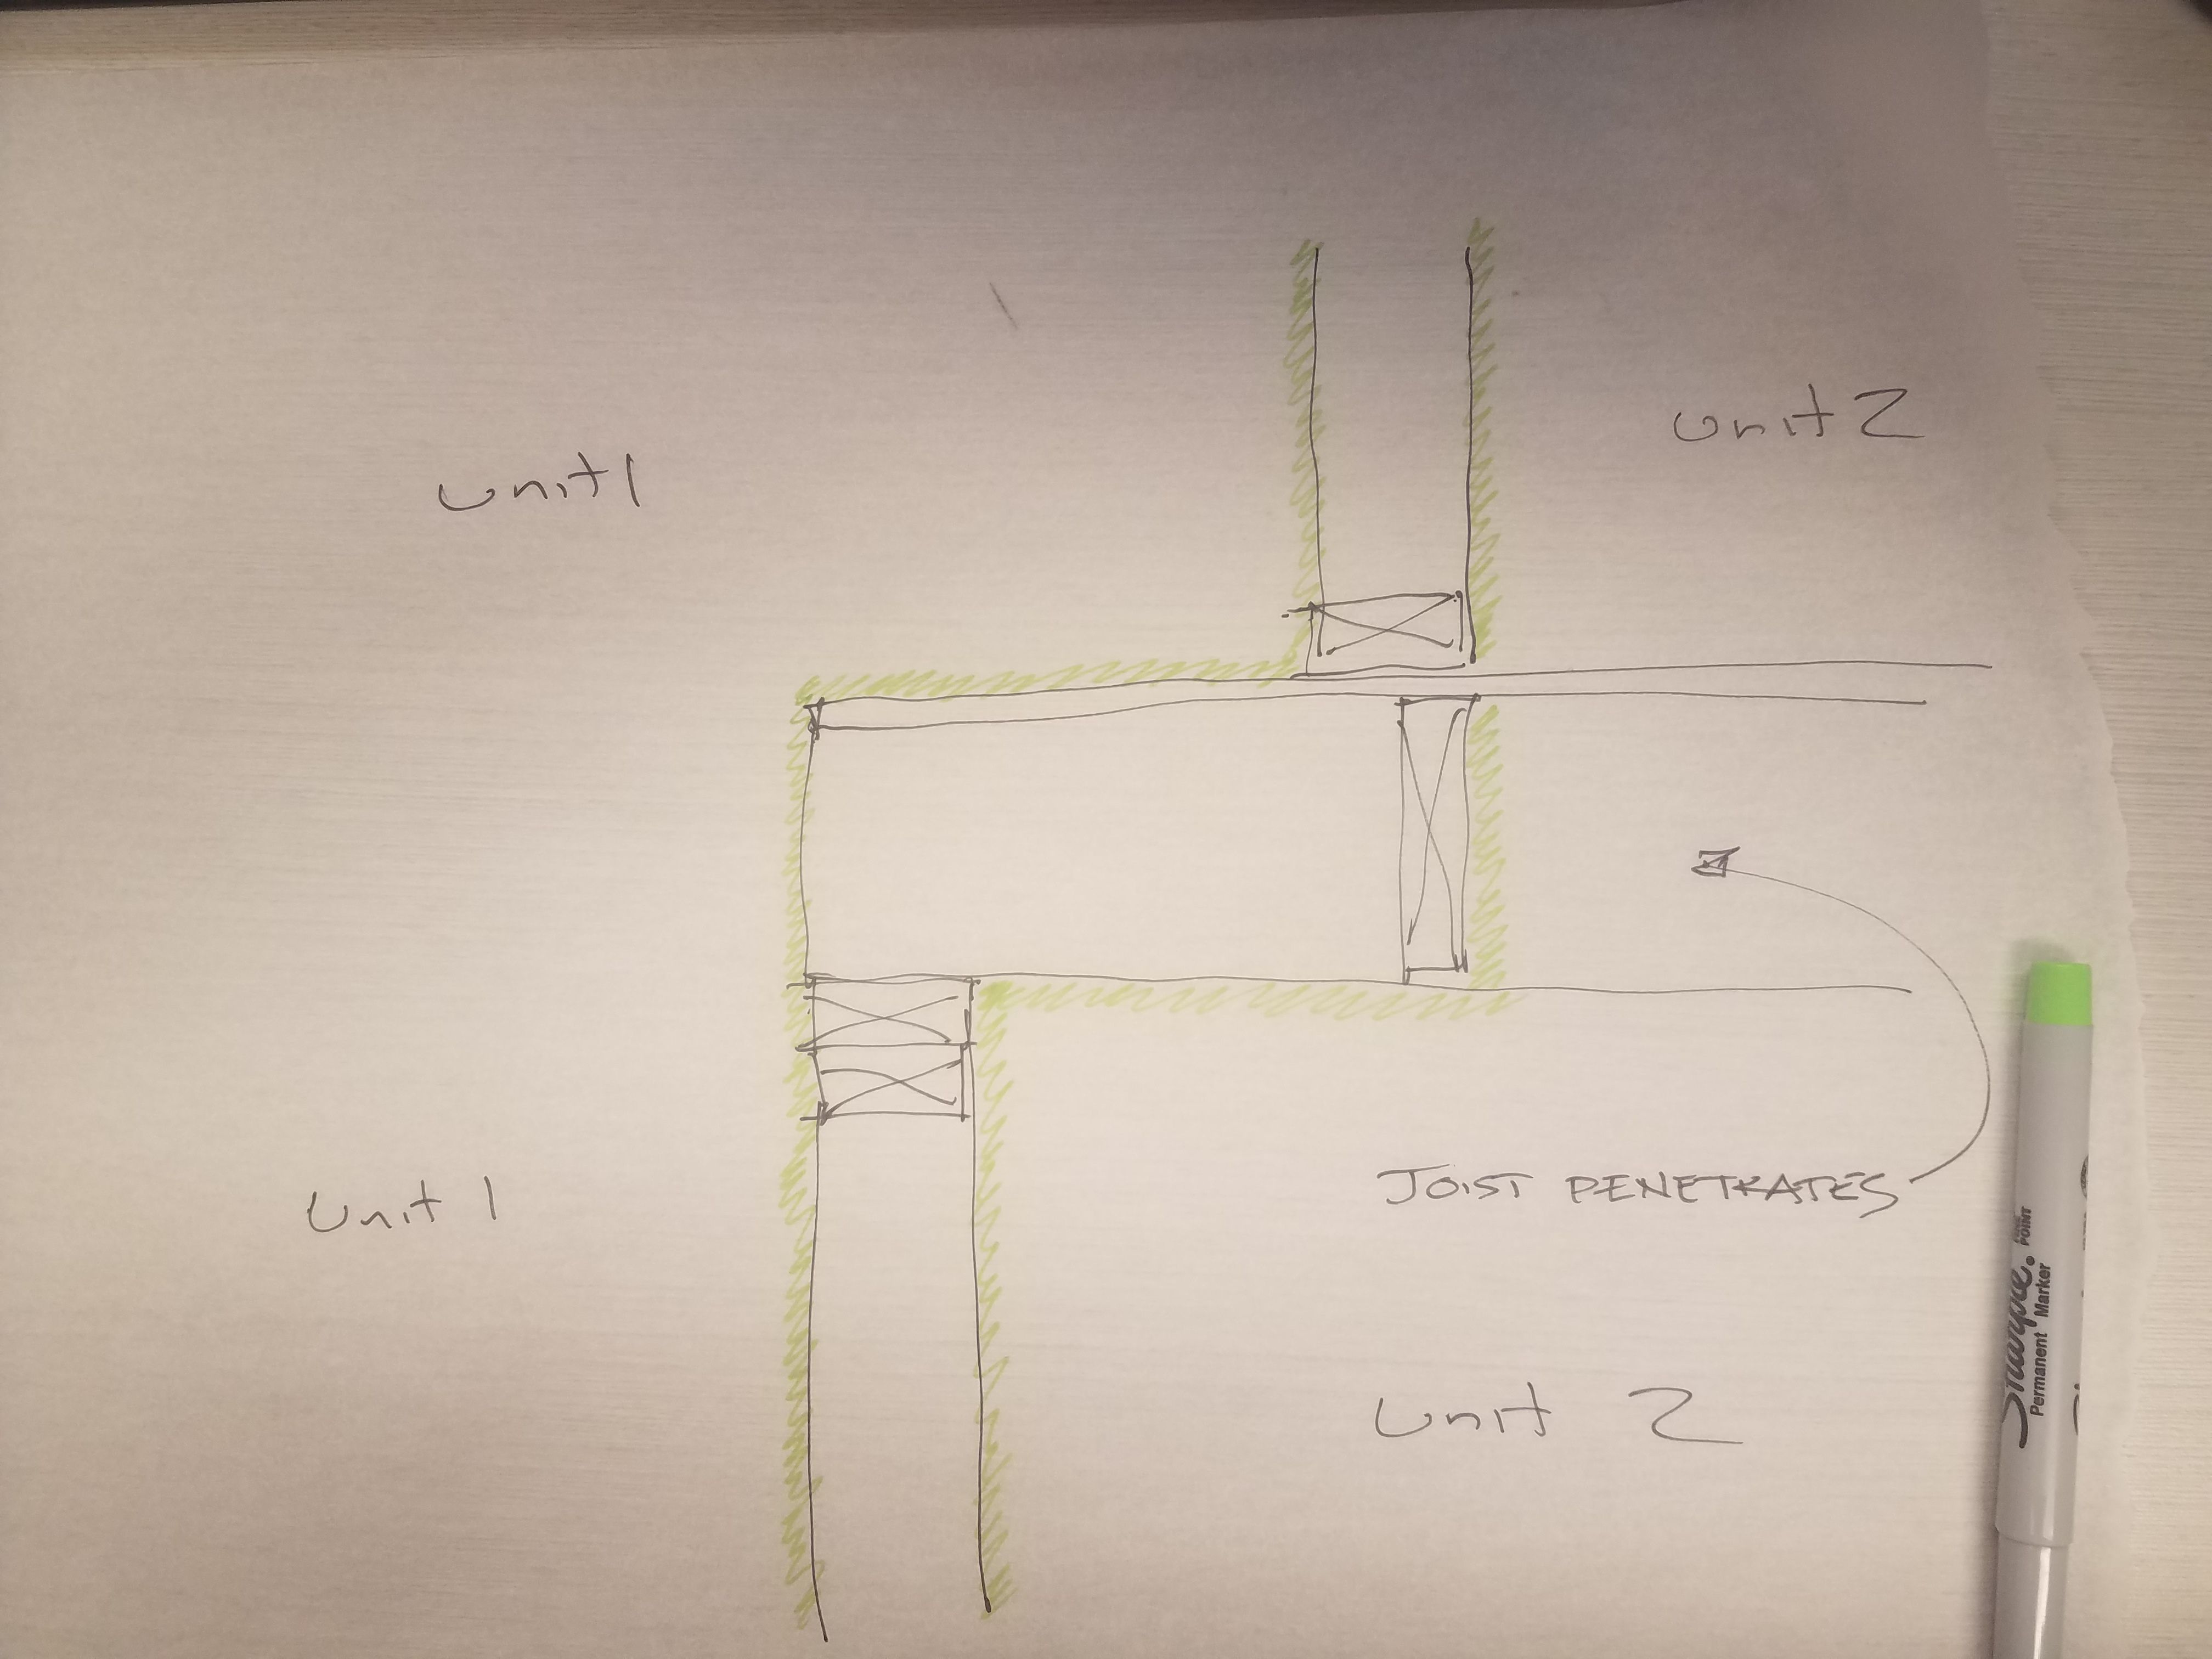 unit 2
unit 1
JOIST PENETRATES
unit 1
unit 2
Sharpie.
FINE POINT
Permanent Marker